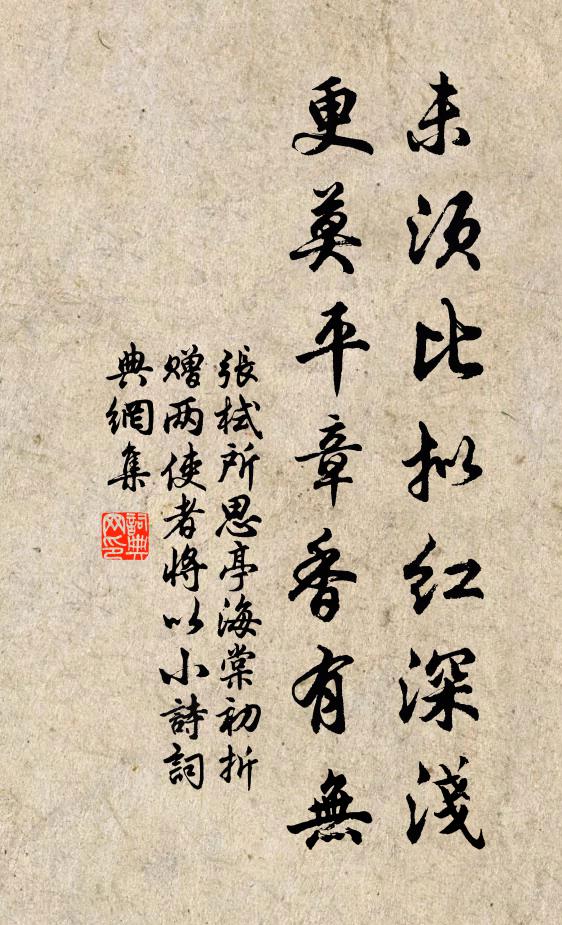 未須比拟红深淺
更莫平章香有無
張栻所思亭海棠初折
赠两使者將以小詩詞
典網集
詞典
网印